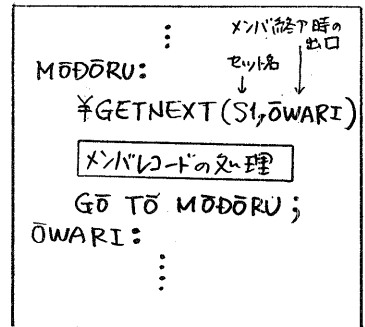 メンバ終了時の
出口
MŌDŌRU:
セット名
¥GETNEXT(S1,ŌWARI)
メンバレコードの処理
GŌ TŌ MŌDŌRU;
ŌWARI: